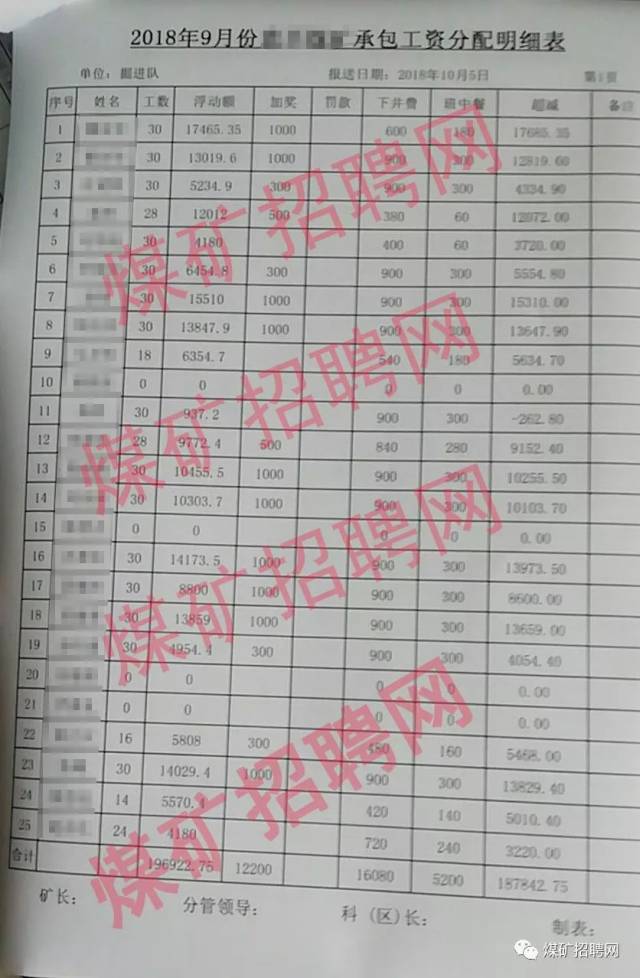 2018年9月份 承包工资分配明细表
单位：掘进队 报送日期：2018年10月5日 第1页
序号 姓名 工数 浮动额 加奖 罚款 下井费 班中餐 超减 备注
1 30 17465.35 1000 600 180 17685.35
2 30 13019.6 1000 900 300 12819.60
3 30 5234.9 300 900 300 4334.90
4 28 12012 500 380 60 12072.00
5 30 4180 400 60 3720.00
6 30 6454.8 300 900 300 5554.80
7 30 15510 1000 900 300 15310.00
8 30 13847.9 1000 900 300 13647.90
9 18 6354.7 540 180 5634.70
10 0 0 0 0 0.00
11 30 937.2 900 300 -262.80
12 28 9772.4 500 840 280 9152.40
13 30 10455.5 1000 900 300 10255.50
14 30 10303.7 1000 900 300 10103.70
15 0 0 0 0 0.00
16 30 14173.5 1000 900 300 13973.50
17 30 8800 1000 900 300 8600.00
18 30 13859 1000 900 300 13659.00
19 30 4954.4 300 900 300 4054.40
20 0 0 0 0 0.00
21 0 0 0 0 0.00
22 16 5808 300 480 160 5468.00
23 30 14029.4 1000 900 300 13829.40
24 14 5570.4 420 140 5010.40
25 24 4180 720 240 3220.00
合计 196922.75 12200 16080 5200 187842.75
矿长： 分管领导： 科（区）长： 制表：
煤矿招聘网
煤矿招聘网
煤矿招聘网
煤矿招聘网
煤矿招聘网